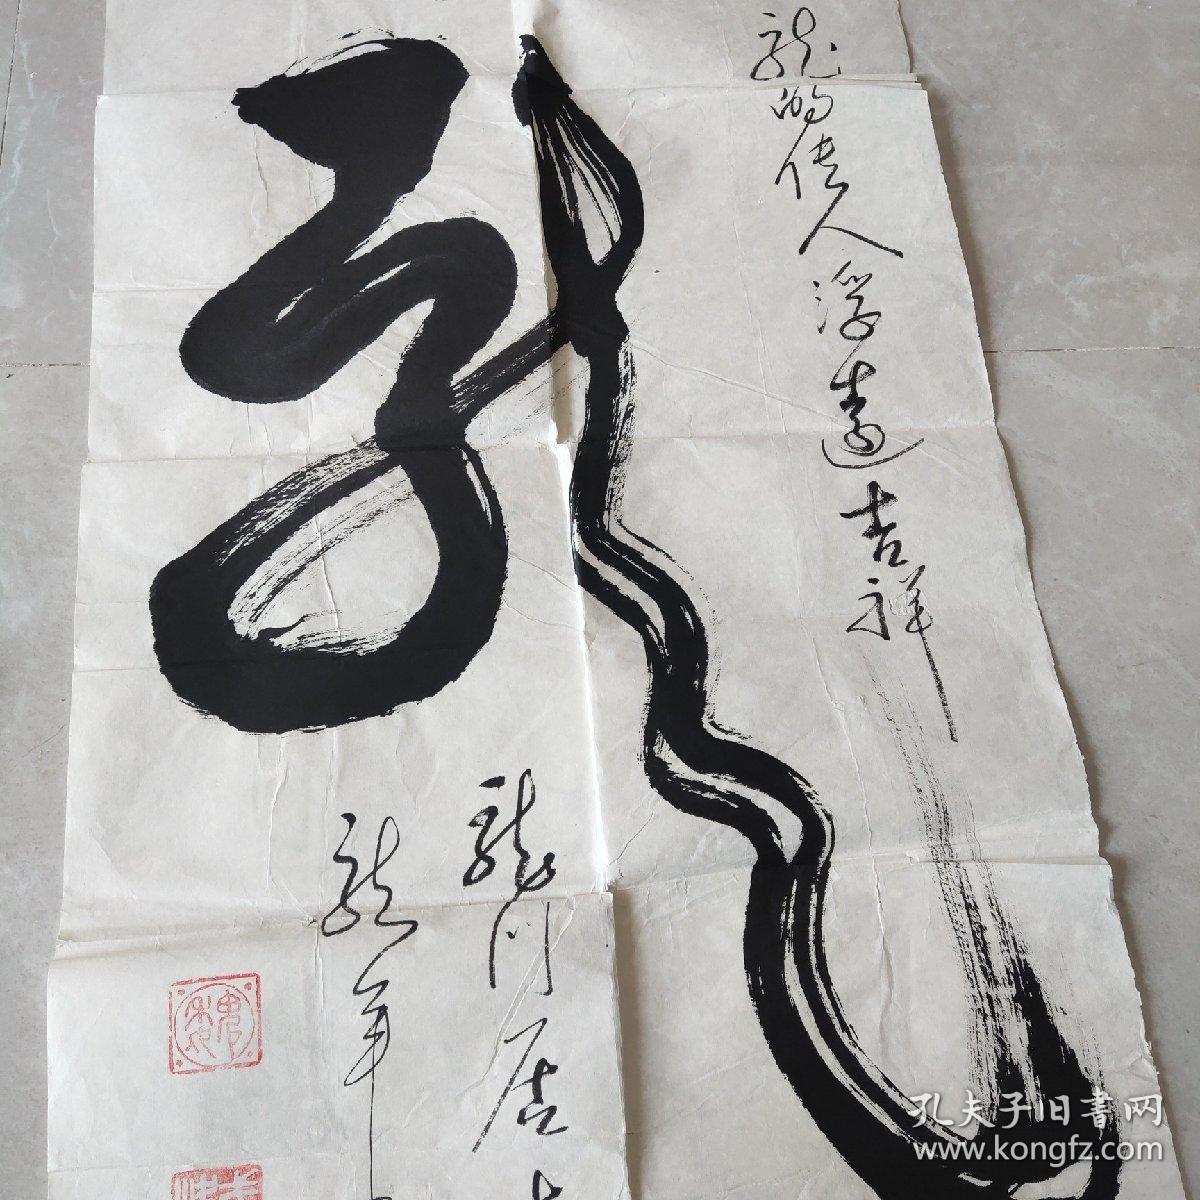 龍
龍的传人浮遠吉祥
龍门居士
龍年
魏
孔夫子旧书网
www.kongfz.com